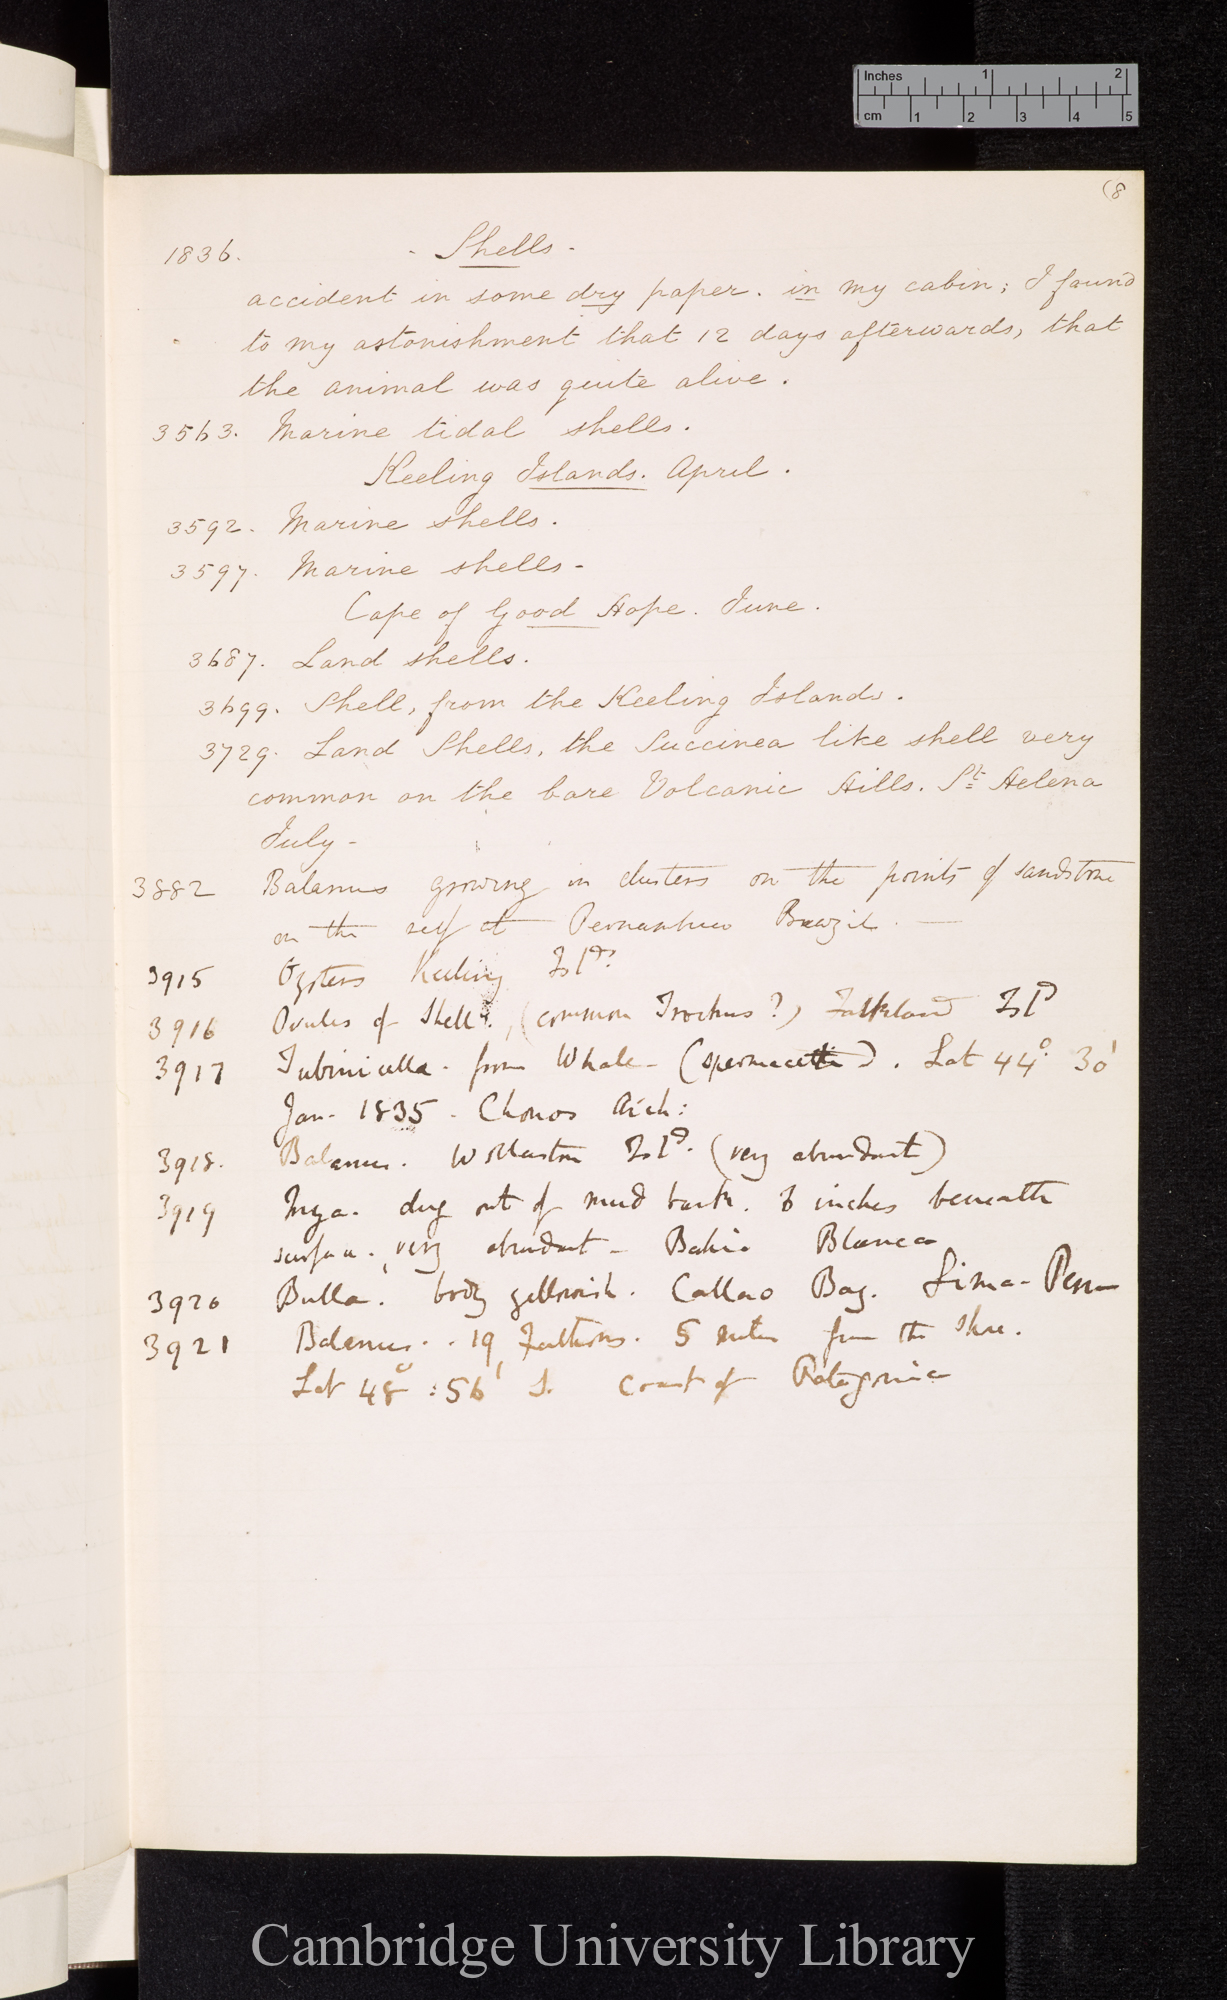 Inches 1 2
cm 1 2 3 4 5
(8
1836. - Shells -
accident in some dry paper. in my cabin; I found
to my astonishment that 12 days afterwards, that
the animal was quite alive.
3563. Marine tidal shells.
Keeling Islands. April.
3592. Marine shells.
3597. Marine shells -
Cape of Good Hope. June.
3687. Land shells.
3699. Shell, from the Keeling Islands.
3729. Land Shells, the Succinea like shell very
common on the bare Volcanic Hills. St Helena
July -
3882 Balanus growing in clusters on the points of sandstone
on the reef at Pernambuco Brazil. —
3915 Oysters Keeling Isld?
3916 Ovules of Shell?, (common Trochus?) Falkland Isld
3917 Tubinicella. from Whale - (spermacetti). Lat 44° 30'
Jan. 1835 - Chonos Arch:
3918. Balanus. Wollaston Isld. (very abundant)
3919 Mya. dug out of mud bank. 6 inches beneath
surface. very abundant - Bahia Blanca
3920 Bulla. body yellowish. Callao Bay. Lima - Peru
3921 Balanus. . 19 Fathoms. 5 miles from the shore.
Lat 48° : 56' S. Coast of Patagonia
Cambridge University Library